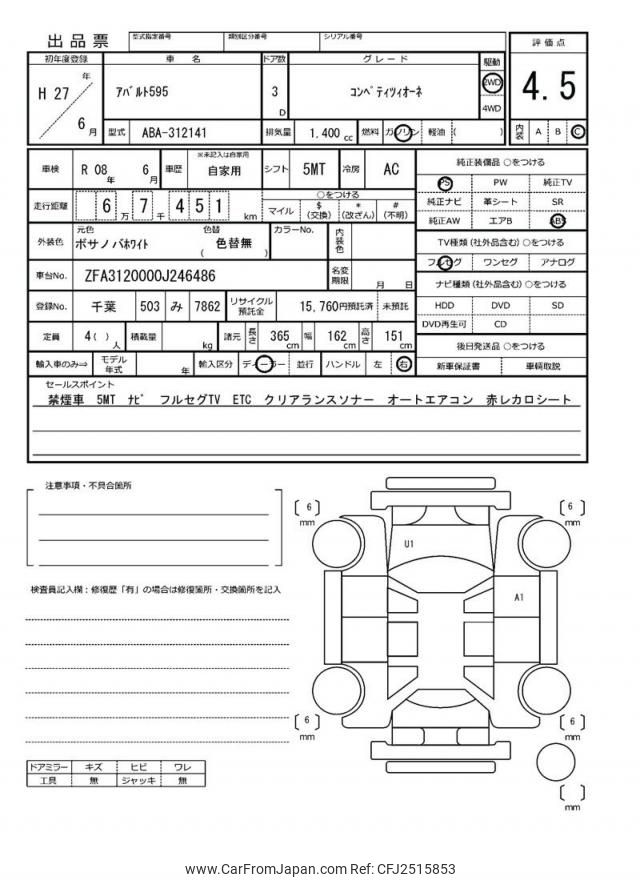 出品票 型式指定番号 類別区分番号 シリアル番号
評価点
4.5
内装 A B C
初年度登録 車名 ドア数 グレード 駆動
H 27 年 6 月
アバルト595
3 D
コンペティツィオーネ
2WD
4WD
型式 ABA-312141 排気量 1.400 cc 燃料 ガソリン 軽油 ( )
車検 R 08 年 6 月 車歴 ※未記入は自家用 自家用 シフト 5MT 冷房 AC
走行距離 6 万 7 千 4 5 1 km
○をつける
マイル $ (交換) * (改ざん) # (不明)
外装色 元色 ボサノバホワイト 色替 ( 色替無 ) カラーNo. 内装色
車台No. ZFA3120000J246486 名変期限 月 日
登録No. 千葉 503 み 7862 リサイクル預託金 15,760円預託済 未預託
定員 4( ) 人 積載量 kg 諸元 長さ 365 cm 幅 162 cm 高さ 151 cm
輸入車のみ⇒ モデル年式 年 輸入区分 ディーラー 並行 ハンドル 左 右
純正装備品 ○をつける
PS PW 純正TV
純正ナビ 革シート SR
純正AW エアB ABS
TV種類(社外品含む)○をつける
フルセグ ワンセグ アナログ
ナビ種類(社外品含む)○をつける
HDD DVD SD
DVD再生可 CD
後日発送品 ○をつける
新車保証書 車輌取説
セールスポイント
禁煙車 5MT ナビ フルセグTV ETC クリアランスソナー オートエアコン 赤レカロシート
注意事項・不具合箇所
検査員記入欄:修復歴「有」の場合は修復箇所・交換箇所を記入
ドアミラー キズ ヒビ ワレ
工具 無 ジャッキ 無
[ 6 ] mm
[ 6 ] mm
U1
A1
[ 6 ] mm
[ 6 ] mm
[ ] mm
www.CarFromJapan.com Ref: CFJ2515853